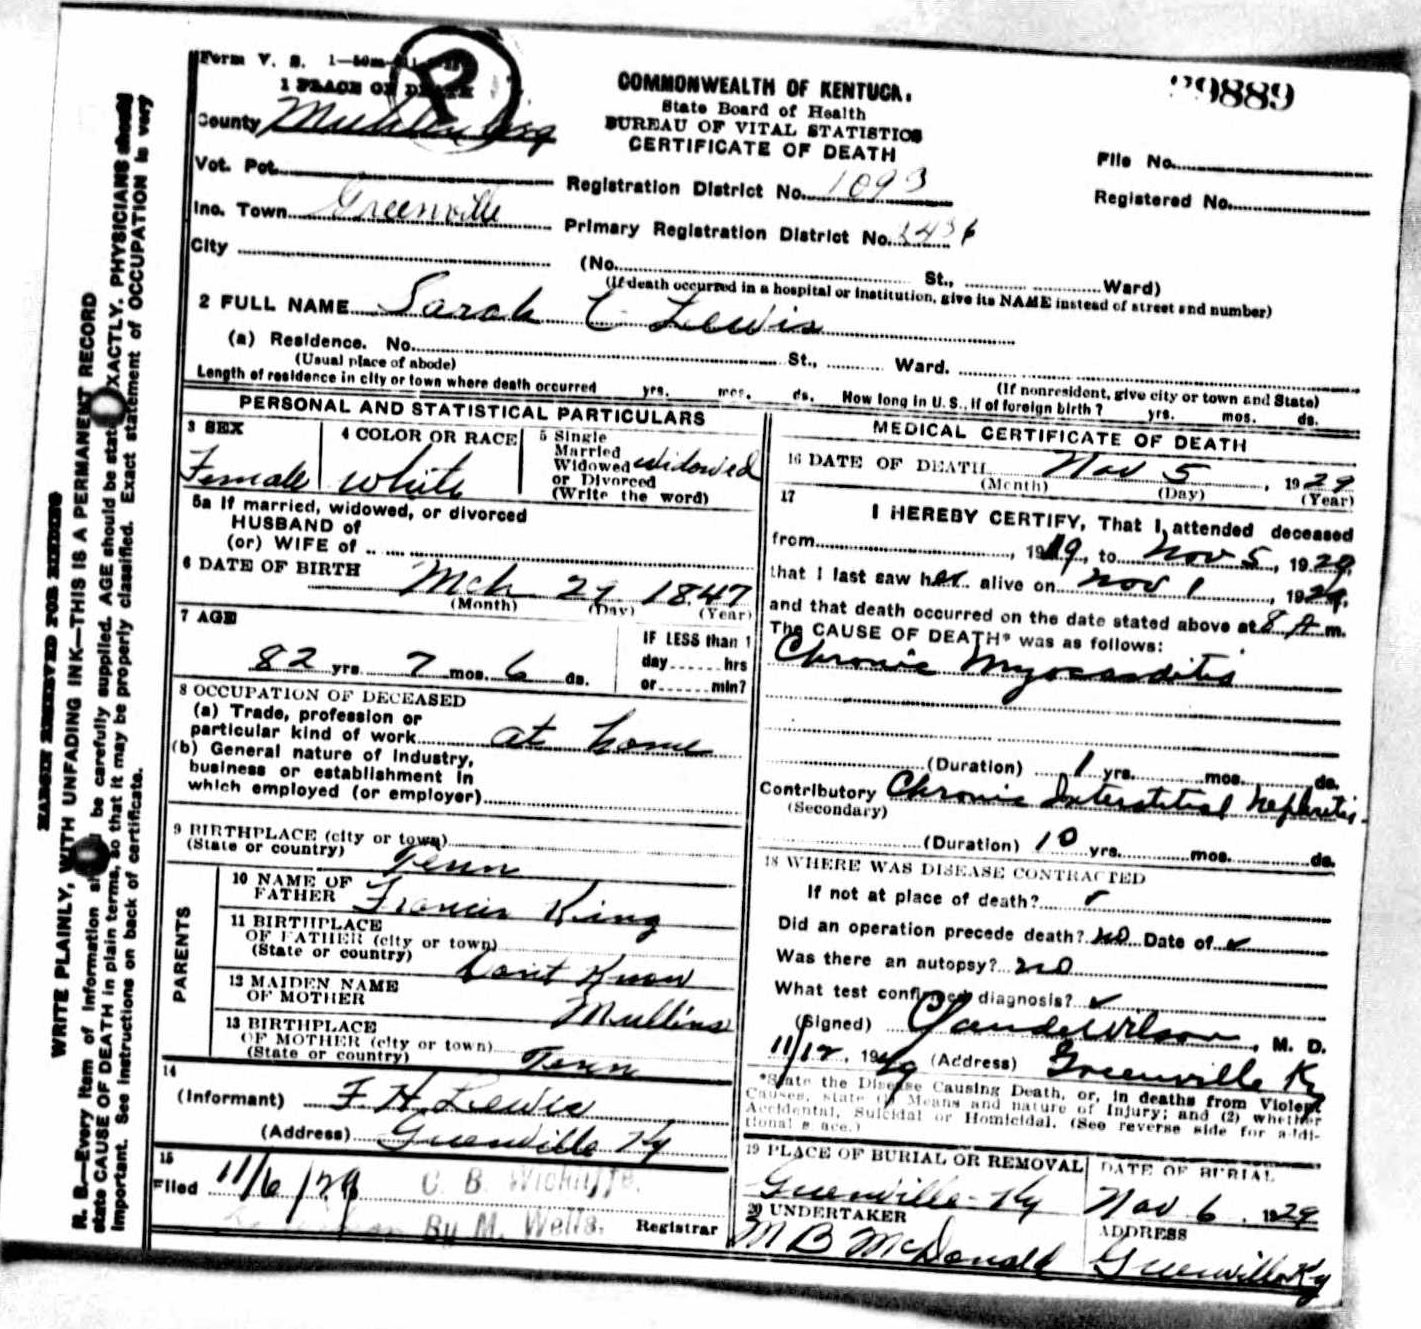 Form V. S. 1—50m
29889
1 PLACE OF DEATH
COMMONWEALTH OF KENTUCK
State Board of Health
BUREAU OF VITAL STATISTICS
CERTIFICATE OF DEATH
County Muhlenberg
File No.
Vot. Pct.
Registration District No. 1093
Registered No.
Inc. Town Greenville
Primary Registration District No. 2436
City
(No. St., Ward)
(If death occurred in a hospital or institution, give its NAME instead of street and number)
2 FULL NAME Sarah C Lewis
(a) Residence. No. St., Ward.
(Usual place of abode)
(If nonresident, give city or town and State)
Length of residence in city or town where death occurred yrs. mos. ds. How long in U. S., if of foreign birth? yrs. mos. ds.
PERSONAL AND STATISTICAL PARTICULARS
3 SEX
Female
4 COLOR OR RACE
White
5 Single
Married
Widowed widowed
or Divorced
(Write the word)
5a If married, widowed, or divorced
HUSBAND of
(or) WIFE of
6 DATE OF BIRTH
Mch 29 1847
(Month) (Day) (Year)
7 AGE
82 yrs. 7 mos. 6 ds.
IF LESS than 1
day hrs
or min?
8 OCCUPATION OF DECEASED
(a) Trade, profession or
particular kind of work at home
(b) General nature of Industry,
business or establishment in
which employed (or employer)
9 BIRTHPLACE (city or town)
(State or country) Tenn
PARENTS
10 NAME OF
FATHER Francis King
11 BIRTHPLACE
OF FATHER (city or town)
(State or country) Don't Know
12 MAIDEN NAME
OF MOTHER Mullins
13 BIRTHPLACE
OF MOTHER (city or town)
(State or country) Tenn
14
(Informant) F. H. Lewis
(Address) Greenville Ky
15
Filed 11/6/29 C. B. Wickliffe,
By M. Wells. Registrar
MEDICAL CERTIFICATE OF DEATH
16 DATE OF DEATH Nov 5, 1929
(Month) (Day) (Year)
17
I HEREBY CERTIFY, That I attended deceased
from , 1919, to Nov 5, 1929,
that I last saw her alive on Nov 1, 1929,
and that death occurred on the date stated above at 8 A m.
The CAUSE OF DEATH* was as follows:
Chronic Myocarditis
(Duration) 1 yrs. mos. ds.
Contributory Chronic Interstitial Nephritis.
(Secondary)
(Duration) 10 yrs. mos. ds.
18 WHERE WAS DISEASE CONTRACTED
If not at place of death?
Did an operation precede death? no Date of ✓
Was there an autopsy? no
What test confirmed diagnosis? ✓
(Signed) Claude Wilson, M. D.
11/12, 1929 (Address) Greenville Ky
*State the Disease Causing Death, or, in deaths from Violent
Causes, state (1) Means and nature of Injury; and (2) whether
Accidental, Suicidal or Homicidal. (See reverse side for addi-
tional space.)
19 PLACE OF BURIAL OR REMOVAL
Greenville Ky
DATE OF BURIAL
Nov 6, 1929
20 UNDERTAKER
M B McDonald
ADDRESS
Greenville Ky
MARGIN RESERVED FOR BINDING
WRITE PLAINLY, WITH UNFADING INK—THIS IS A PERMANENT RECORD
N. B.—Every item of information should be carefully supplied. AGE should be stated EXACTLY. PHYSICIANS should
state CAUSE OF DEATH in plain terms, so that it may be properly classified. Exact statement of OCCUPATION is very
important. See instructions on back of certificate.